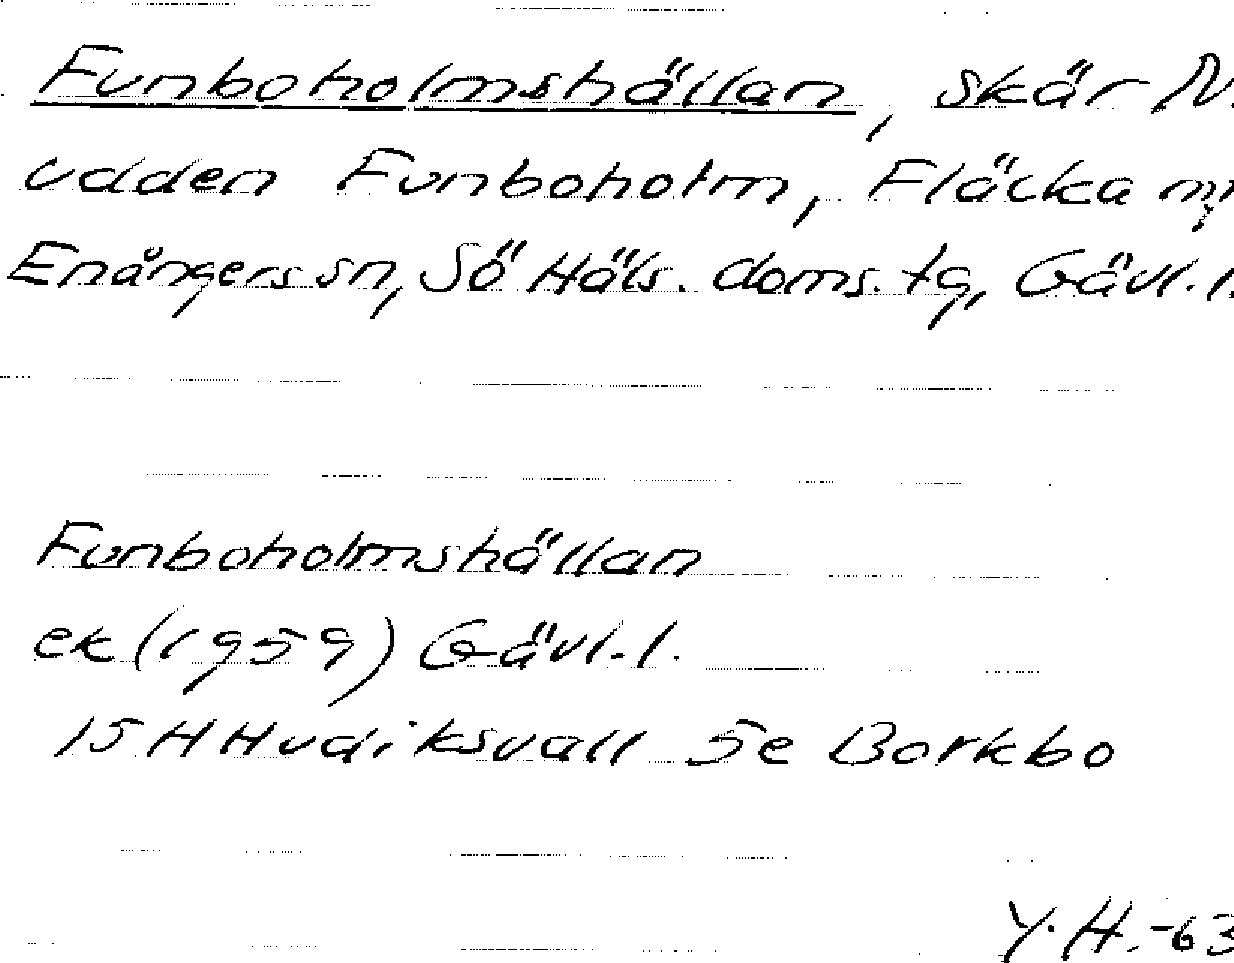 Funboholmshällan, skär N.
udden Funboholm, Fläcka
Enångers sn, Sö Häls. doms. tg, Gävl. l.
Funboholmshällan
ek (1959) Gävl. l.
15 H Hudiksvall 5e Borkbo
Y. H. -63